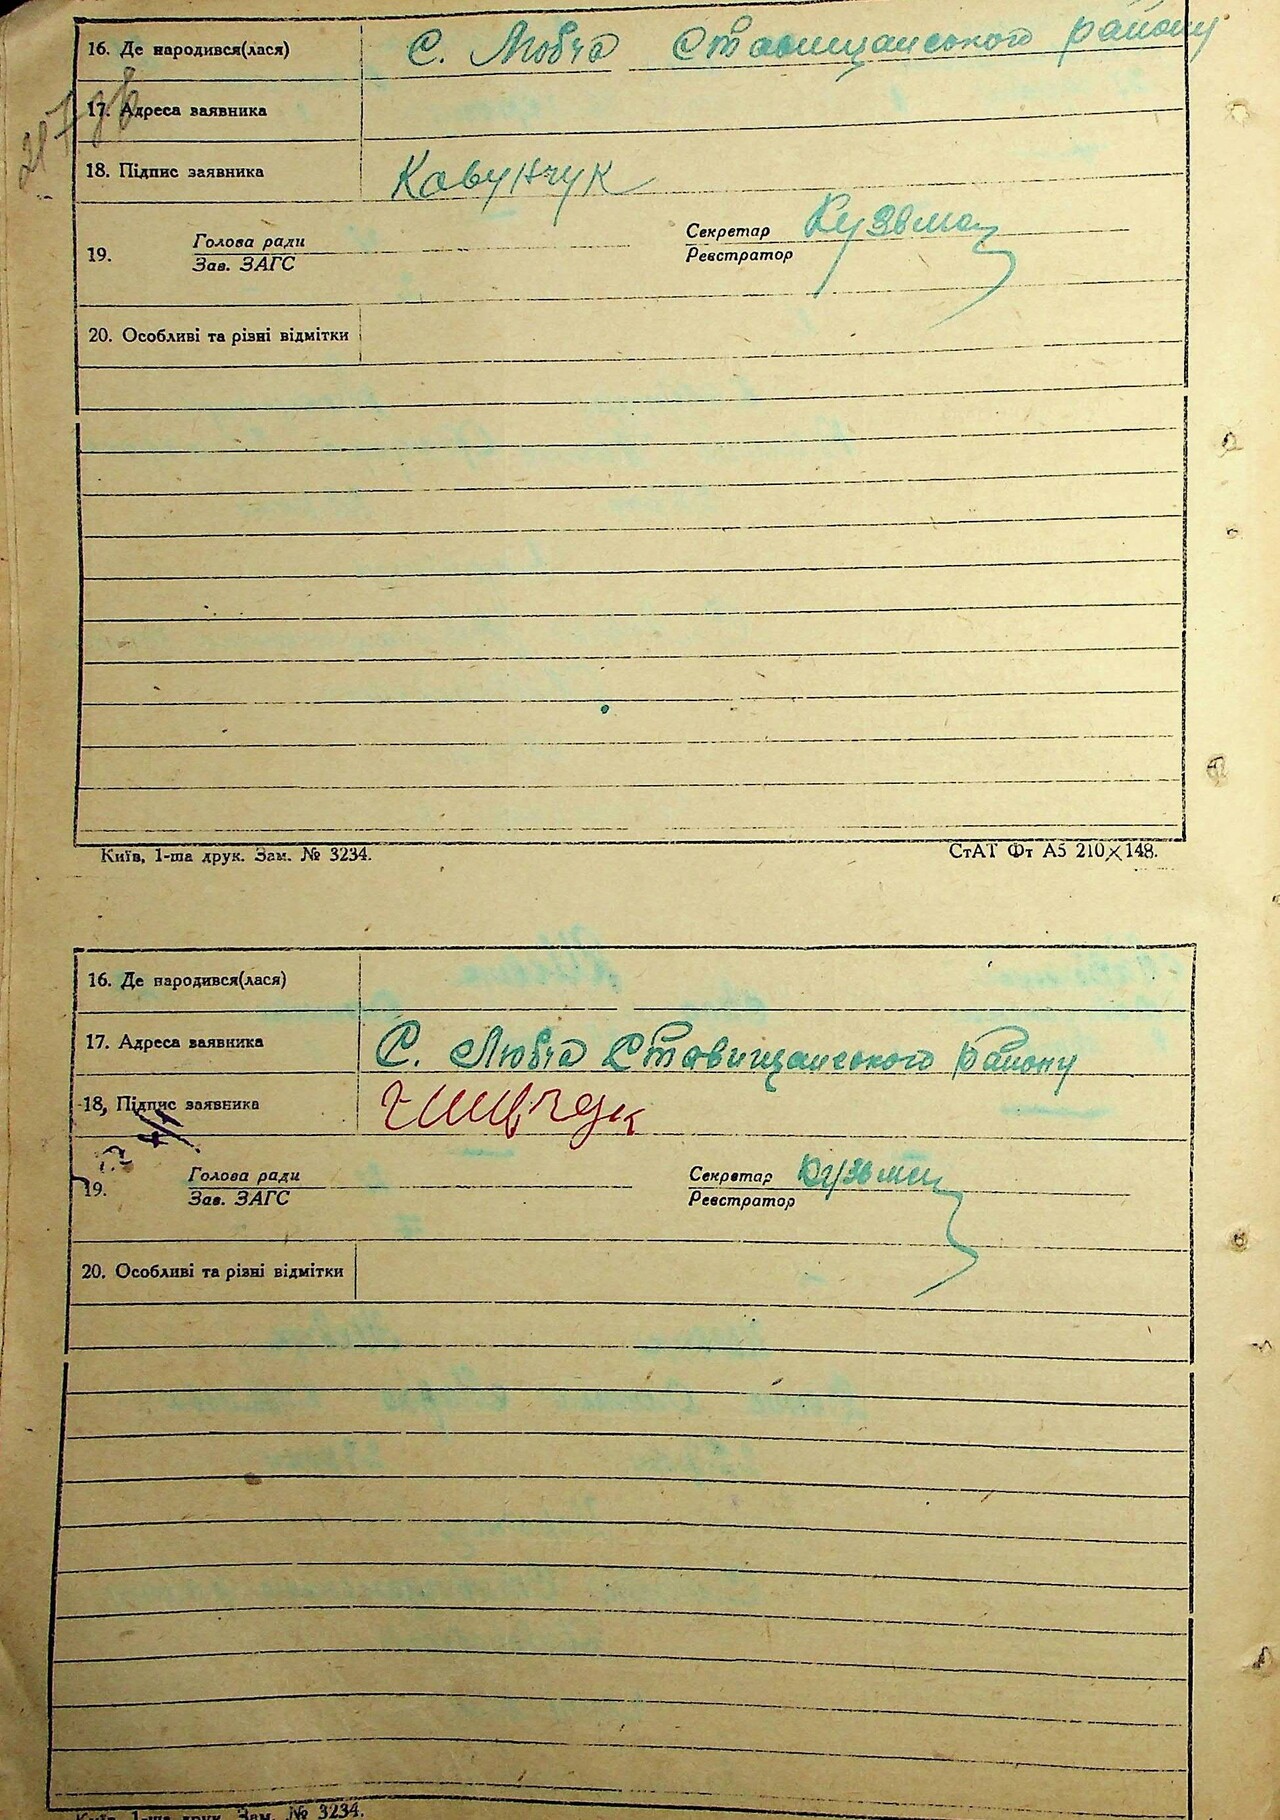 16. Де народився(лася) С. Любча Ставищанського району
17. Адреса заявника
18. Підпис заявника Кавунчук
19. Голова ради Секретар
Зав. ЗАГС Реєстратор
20. Особливі та різні відмітки
Київ, 1-ша друк. Зам. № 3234. СтАТ Фт А5 210×148.
16. Де народився(лася)
17. Адреса заявника С. Любча Ставищанського району
18, Підпис заявника
19. Голова ради Секретар
Зав. ЗАГС Реєстратор
20. Особливі та різні відмітки
Київ, 1-ша друк. Зам. № 3234.